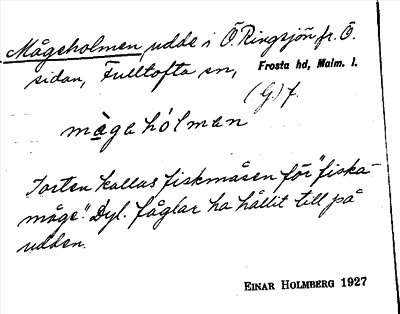 Mågeholmen, udde i Ö. Ringsjön fr. Ö.
sidan, Fulltofta sn, Frosta hd, Malm. l.
(G) f.
mågahólman
I orten kallas fiskmåsen för "fiska-
måge". Dyl. fåglar ha hållit till på
udden.
EINAR HOLMBERG 1927